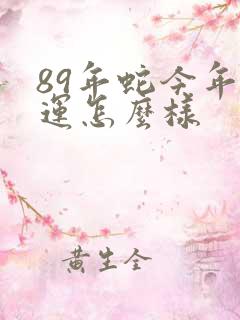 89年蛇今年
運怎麼樣
黃生全